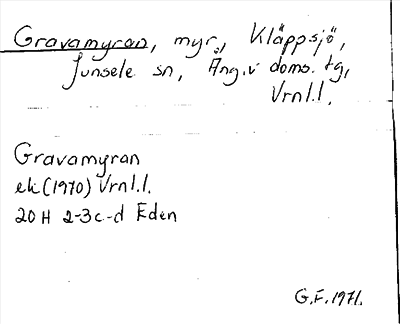 Gravamyran, myr, Kläppsjö,
Junsele sn, Ång.v doms. tg,
Vrnl.l.
Gravamyran
ek (1970) Vrnl.l.
20 H 2-3 c-d Eden
G.F. 1971.